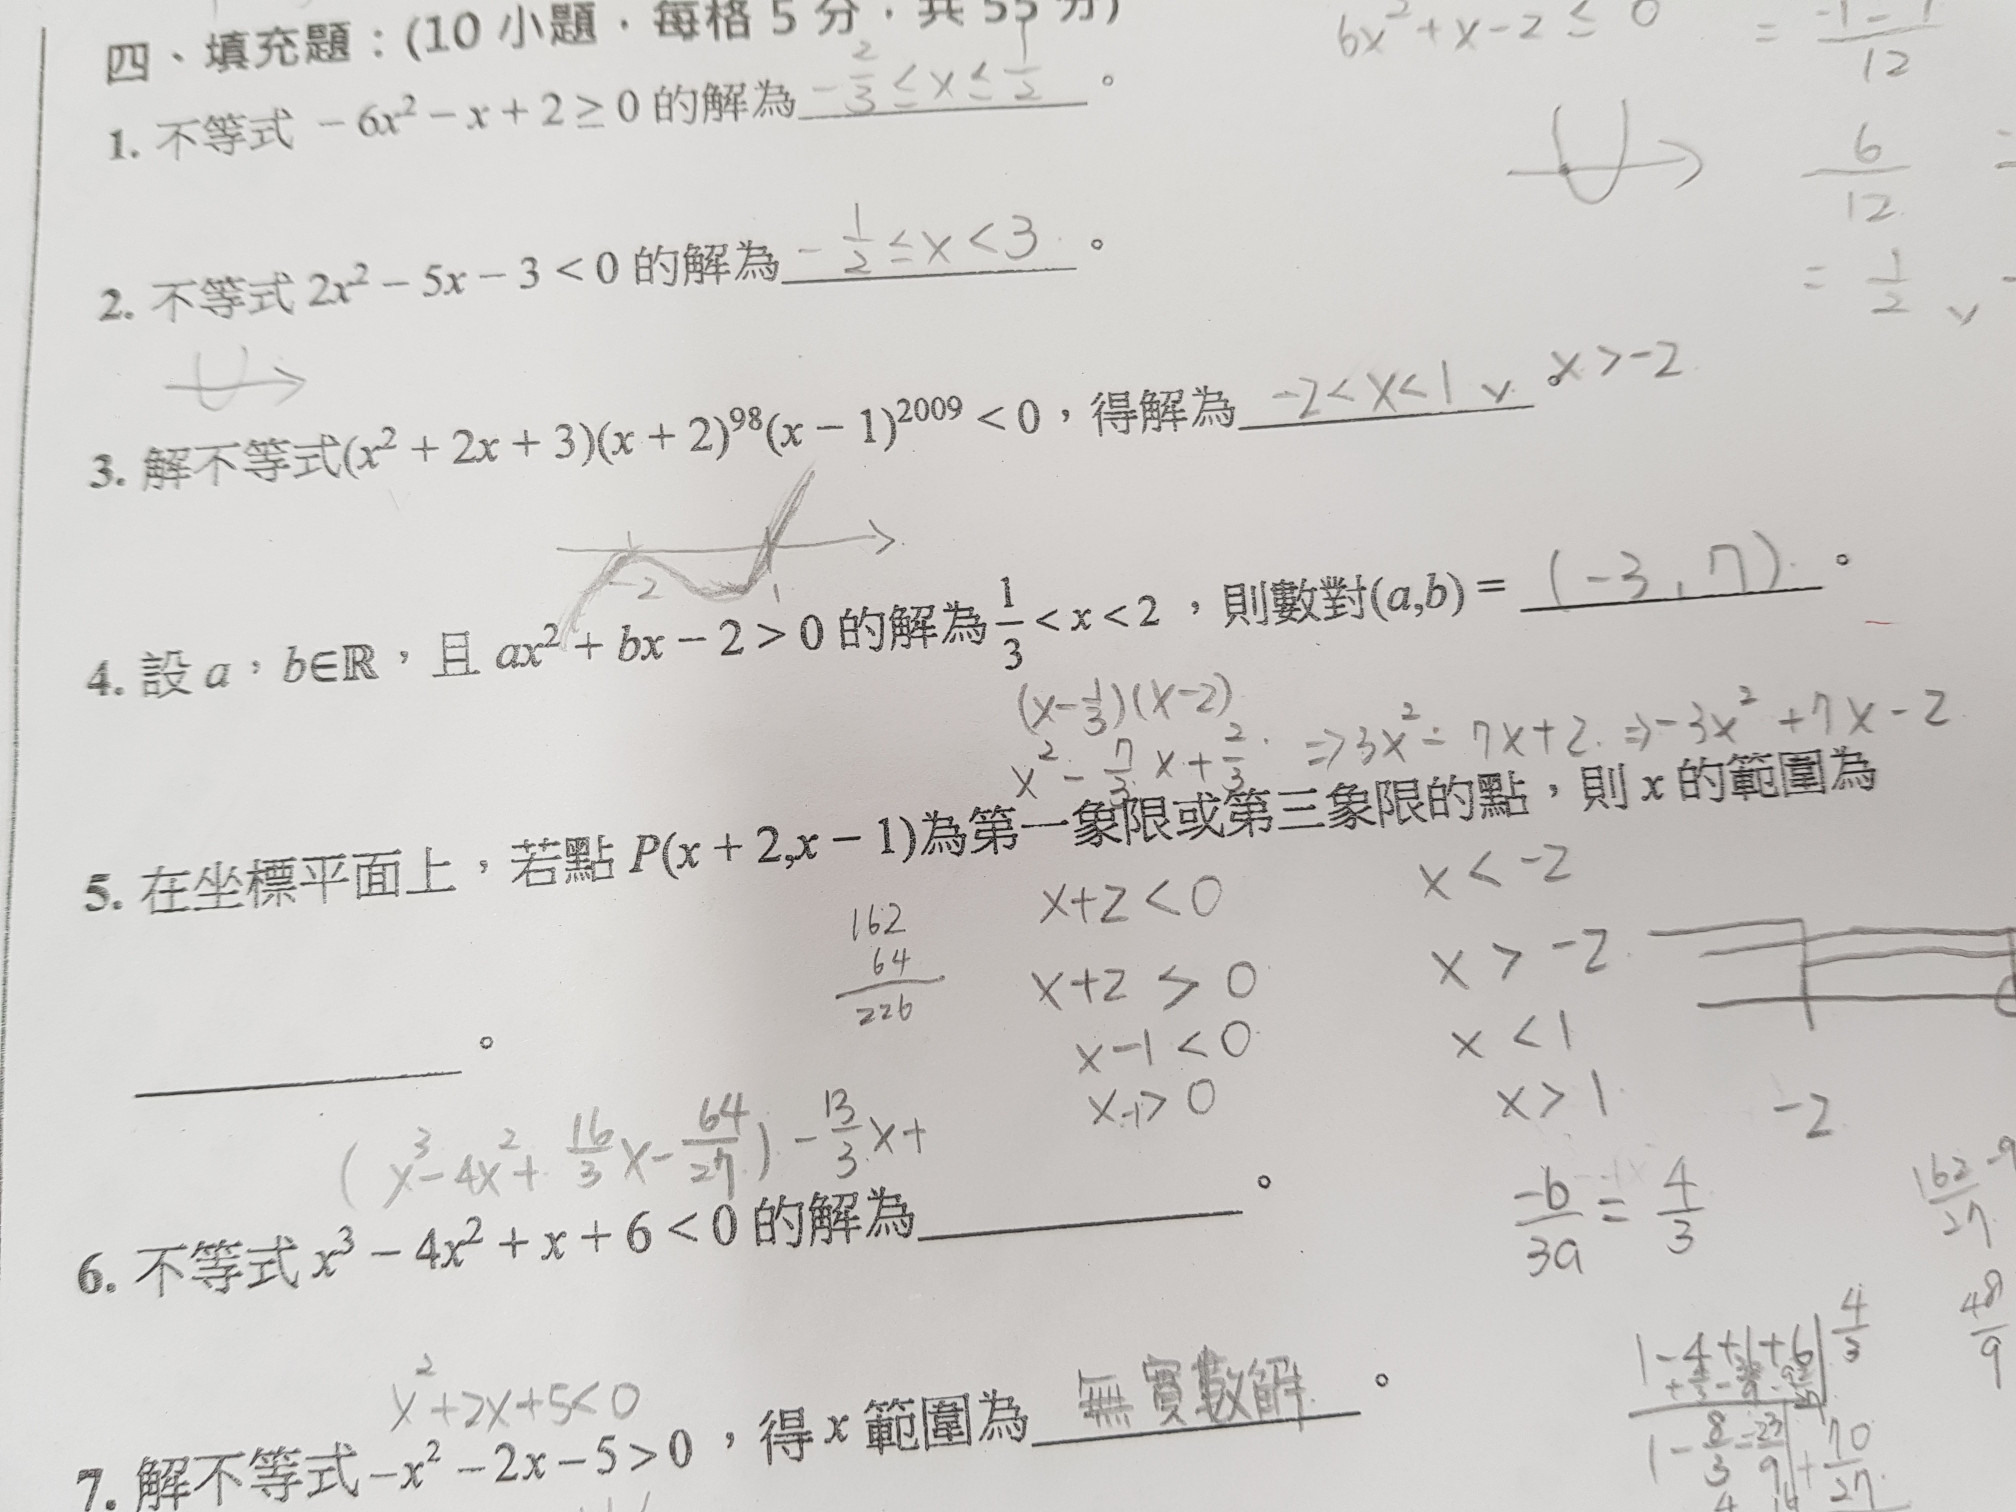 四、填充題：(10 小題．每格 5 分．共 55 分)
6x² + x - 2 ≤ 0
1. 不等式 - 6x² - x + 2 ≥ 0 的解為 - 2/3 ≤ x ≤ 1/2 。
12
6/12
= 1/2
2. 不等式 2x² - 5x - 3 < 0 的解為 - 1/2 ≤ x < 3 。
3. 解不等式(x² + 2x + 3)(x + 2)⁹⁸(x - 1)²⁰⁰⁹ < 0，得解為 -2 < x < 1 。 x > -2
-2 1
4. 設 a，b∈ℝ，且 ax² + bx - 2 > 0 的解為 1/3 < x < 2，則數對(a,b) = (-3, 7) 。
(x - 1/3)(x - 2)
x² - 7/3 x + 2/3 ⇒ 3x² - 7x + 2 ⇒ -3x² + 7x - 2
5. 在坐標平面上，若點 P(x + 2,x - 1)為第一象限或第三象限的點，則 x 的範圍為
。
x + 2 < 0 x < -2
162
64
226
x + 2 > 0 x > -2
x - 1 < 0 x < 1
x - 1 > 0 x > 1
-2
(x³ - 4x² + 16/3 x - 64/27) - 13/3 x +
-b/3a = 4/3
162/27
6. 不等式 x³ - 4x² + x + 6 < 0 的解為 。
48/9
1 - 4 + 1 + 6 4/3
1 - 8/3 - 23/9 + 70/27
x² + 2x + 5 < 0
7. 解不等式 -x² - 2x - 5 > 0，得 x 範圍為 無實數解 。